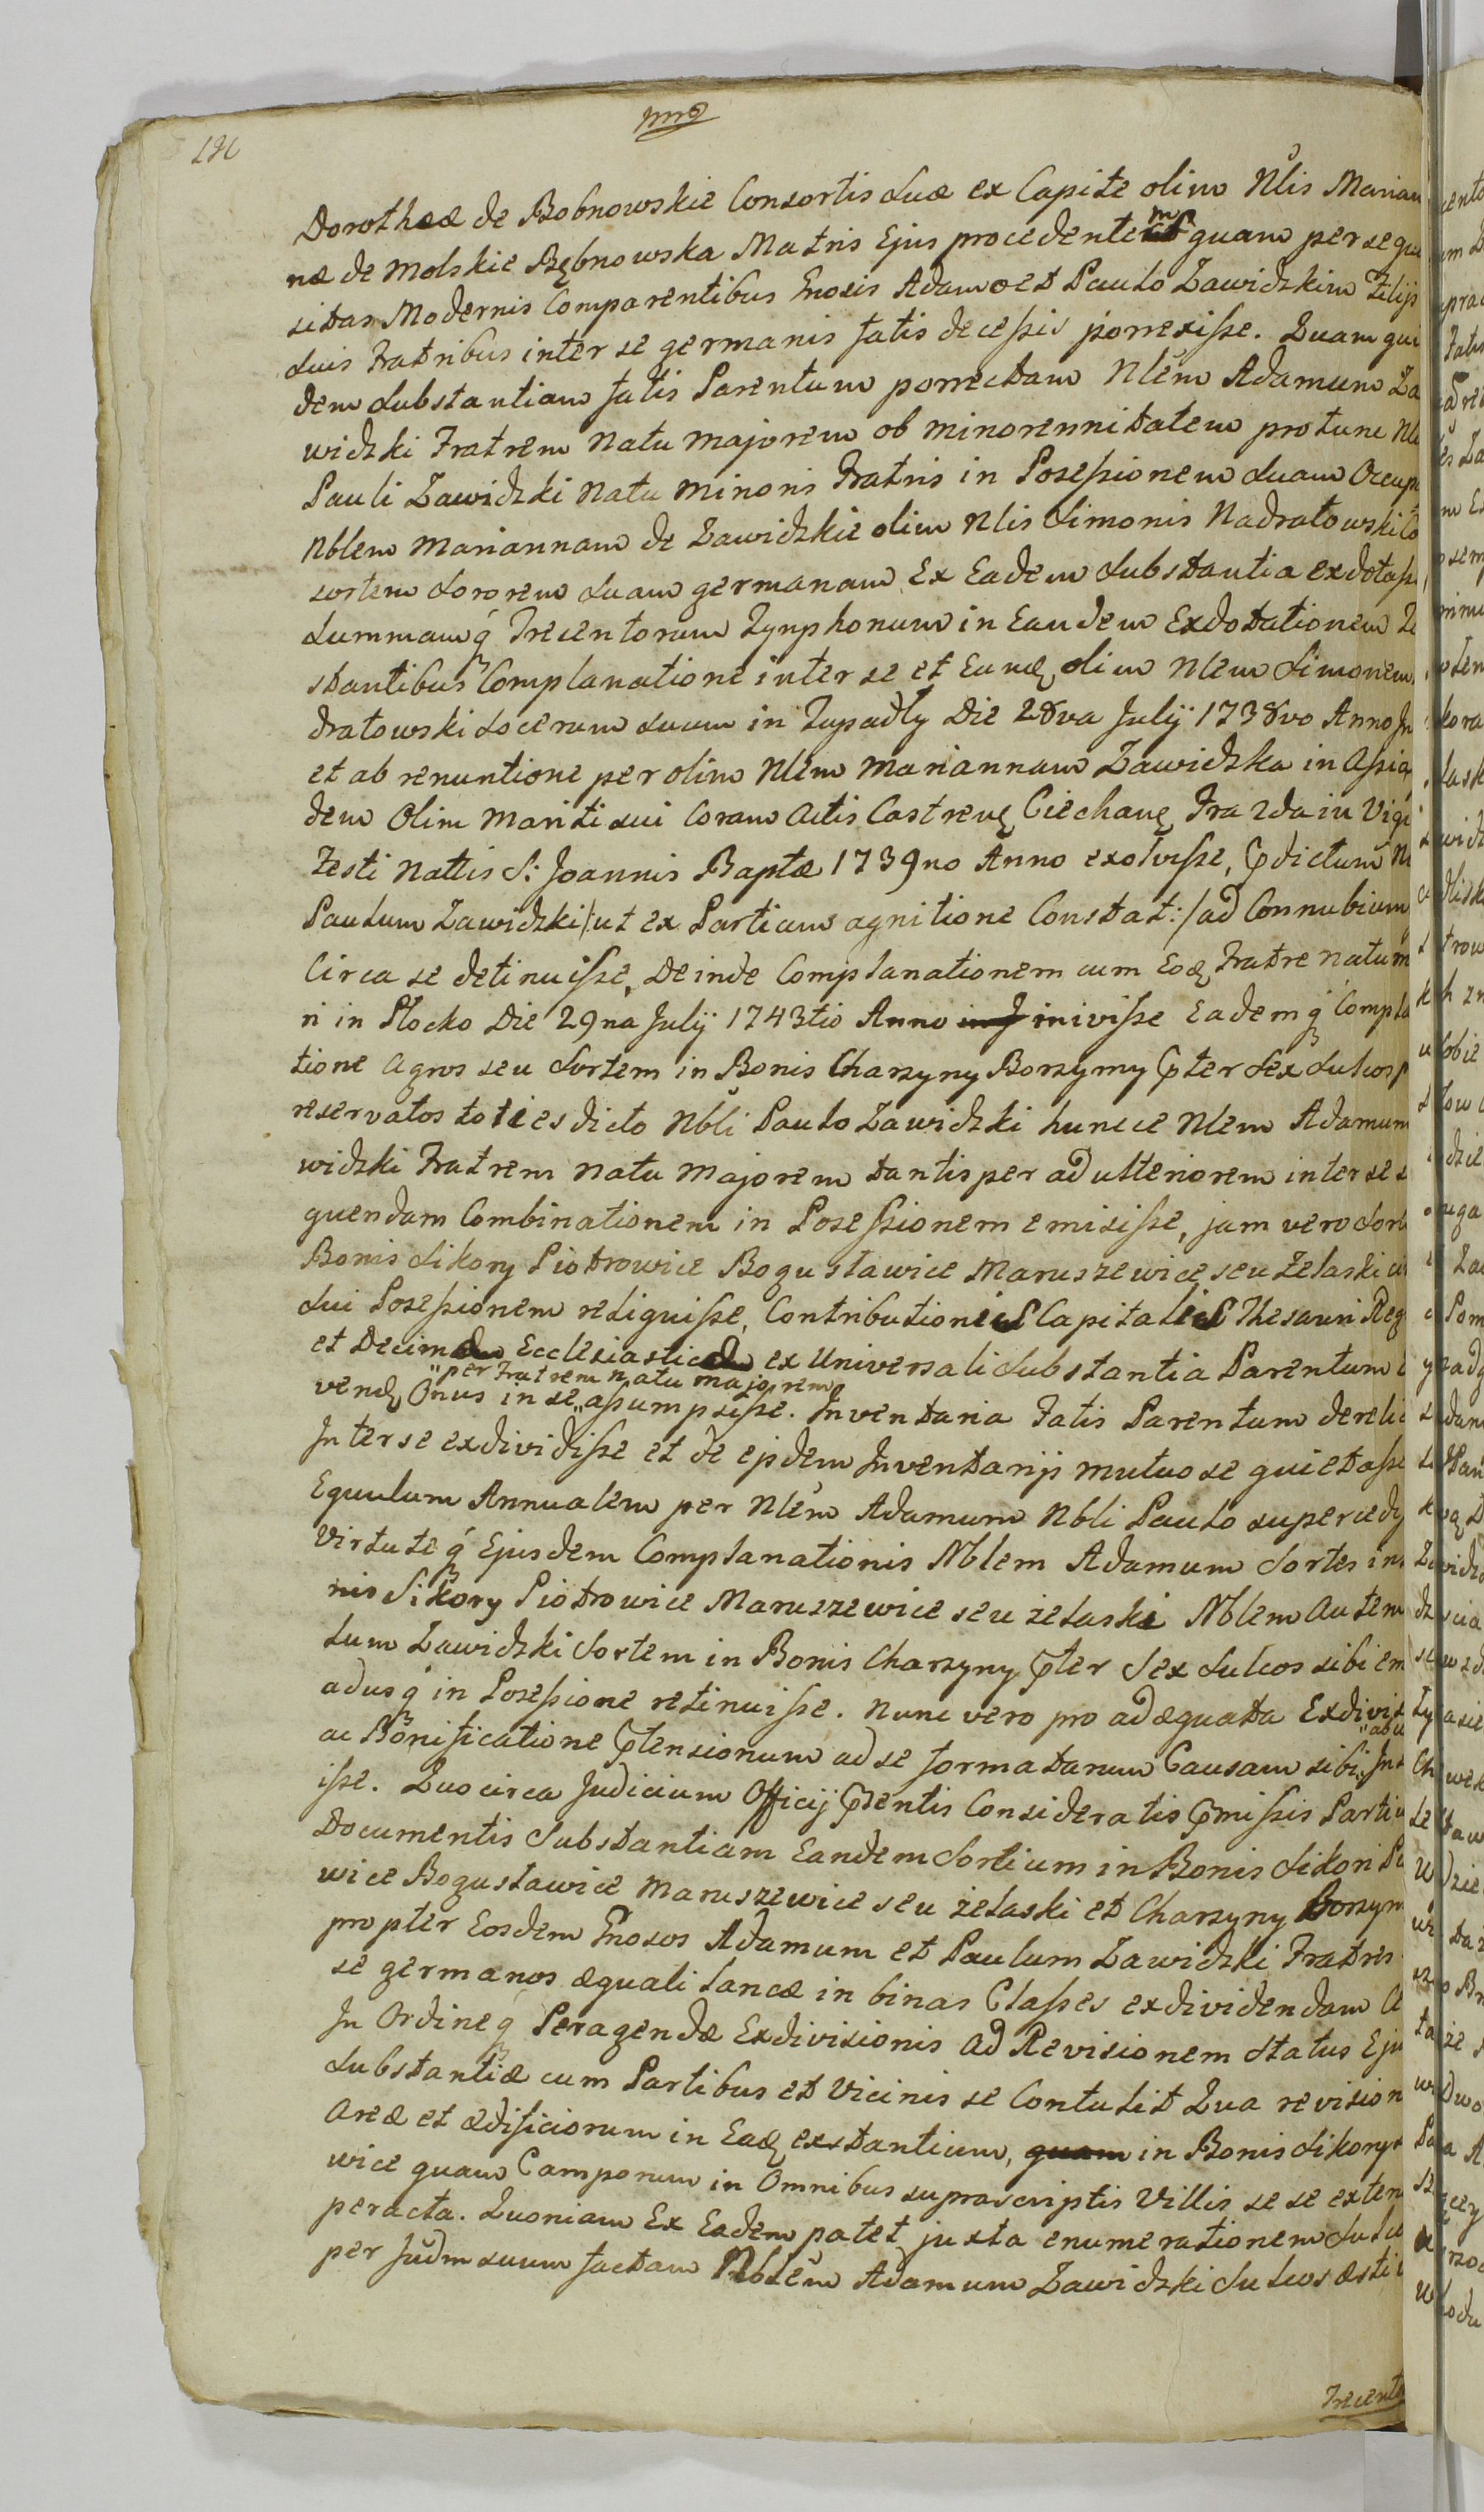 Dorotheæ de Bobnowskie Consortis Suæ ex Capite olim Nlis Marian
næ de Molskie Bębnowska Matris Ejus procedentem quam per se qu
sitas Modernis Comparentibus Gnosis Adamo et Paulo Zawidzkim Filijs
Suis Fratribus inter se germanis fatis decessis porrexisse. Quam qui
dem Substantiam fatis Parentum porrectam Nlem Adamum Za
widzki Fratrem Natu Majorem ob minorennitatem protunc Nl
Pauli Zawidzki Natu Minoris Fratris in Posessionem Suam Occup
Nblem Mariannam de Zawidzkie olim Nlis Simonis Nadratowski Co
sortem Sororem Suam germanam Ex Eadem Substantia exdotass
Summamq́ Trecentorum Tynphonum in Eandem Exdotationem
stantibus Complanatione inter se et Eund olim Nlem Simonem
dratowski Socerum Suum in Zupadły Die 28va Julij 1738vo Anno In
et ab renuntione per olim Nlem Mariannam Zawidzka in Assia
dem Olim Mariti sui Coram Actis Castren Ciechan Fra 2da in Vigi
Festi Nattis S: Joannis Baptæ 1739no Anno exolvisse, Pdictum N
Paulum Zawidzki /:ut ex Partium agnitione Constat:/ ad Connubium
Circa se detinuisse, Deinde Complanationem cum Eod Fratre natu m
ri in Płocko Die 29na Julij 1743tio Anno inivisse Eademq́ Compla
tione Agros seu Sortem in Bonis Charzyny Borzymy Pter Sex Sulcos p
reservatos toties dicto Nbli Paulo Zawidzki hunce Nlem Adamum
widzki Fratrem Natu Majorem tantisper ad ulteriorem inter se s
quendam Combinationem in Posessionem emisisse, jam vero Sort
Bonis Sikory Piotrowice Bogusławice Maruszewice seu Żelaski ci
Sui Posessionem reliquisse, Contributiones Capitales Thesauri Reg
et Decimas Ecclesiasticas ex Universali Substantia Parentum
"per Fratrem natu majorem
vend Onus in se "assumpsisse. Inventaria Fatis Parentum dereli
Inter se exdividisse et de ejsdem Inventarijs mutuo se quietasse
Equulum Annualem per Nlem Adamum Nbli Paulo superced
Virtuteq́ Ejusdem Complanationis Nblem Adamum Sortes in
nis Sikory Piotrowice Maruszewice seu żelaski Nblem Autem
lum Zawidzki Sortem in Bonis Charzyny Pter Sex Sulcos sibi em
adusq́ in Posessione retinuisse. Nunc vero pro adæquata Exdivis
ac Bonificatione Ptensionum ad se formatarum Causam sibi "ab u Int
isse. Quocirca Judicium Officij Psentis Consideratis Pmissis Partiu
Documentis Substantiam Eandem Sortium in Bonis Sikori Pi
wice Bogusławice Maruszewice seu żelaski et Charzyny Borzym
propter Eosdem Gnosos Adamum et Paulum Zawidzki Fratres
se germanos æquali lancæ in binas Classes exdividendam
In Ordineq́ Peragendæ Exdivisionis ad Revisionem Status Eju
Substantiæ cum Partibus et Vicinis se Contulit Qua revision
Areæ et ædificiorum in Ead exstantium, quam in Bonis Sikory
wice quam Camporum in Omnibus suprascriptis Villis se se exten
peracta. Quoniam Ex Eadem patet juxta enumerationem Sulc
per Judm suum factam Nblem Adamum Zawidzki Sulcos æsti
Trecent